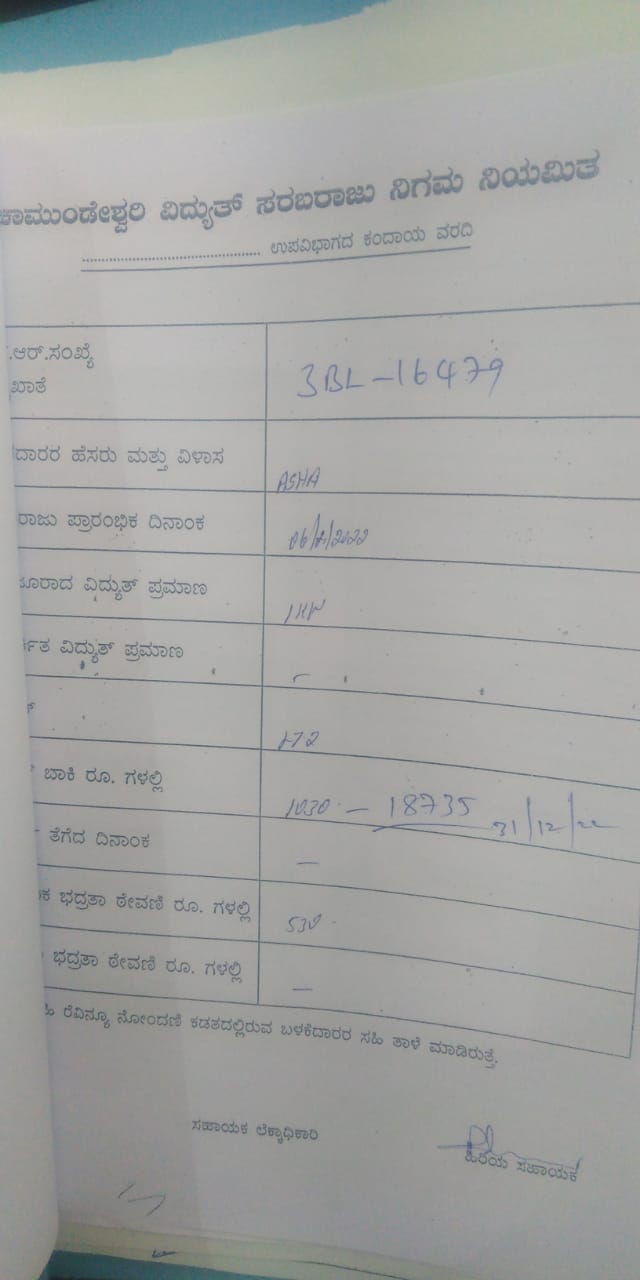 ಚಾಮುಂಡೇಶ್ವರಿ ವಿದ್ಯುತ್ ಸರಬರಾಜು ನಿಗಮ ನಿಯಮಿತ
............................................ ಉಪವಿಭಾಗದ ಕಂದಾಯ ವರದಿ
.ಆರ್.ಸಂಖ್ಯೆ
ಖಾತೆ
3BL-16479
ದಾರರ ಹೆಸರು ಮತ್ತು ವಿಳಾಸ
ASHA
ರಾಜು ಪ್ರಾರಂಭಿಕ ದಿನಾಂಕ
ೂರಾದ ವಿದ್ಯುತ್ ಪ್ರಮಾಣ
ತ ವಿದ್ಯುತ್ ಪ್ರಮಾಣ
-
ಬಾಕಿ ರೂ. ಗಳಲ್ಲಿ
1030 - 18735 31/12/22
ತೆಗೆದ ದಿನಾಂಕ
-
ಕ ಭದ್ರತಾ ಠೇವಣಿ ರೂ. ಗಳಲ್ಲಿ
530
ಭದ್ರತಾ ಠೇವಣಿ ರೂ. ಗಳಲ್ಲಿ
-
ರೆವಿನ್ಯೂ ನೋಂದಣಿ ಕಡತದಲ್ಲಿರುವ ಬಳಕೆದಾರರ ಸಹಿ ತಾಳೆ ಮಾಡಿರುತ್ತೆ.
ಸಹಾಯಕ ಲೆಕ್ಕಾಧಿಕಾರಿ
ಹಿರಿಯ ಸಹಾಯಕ